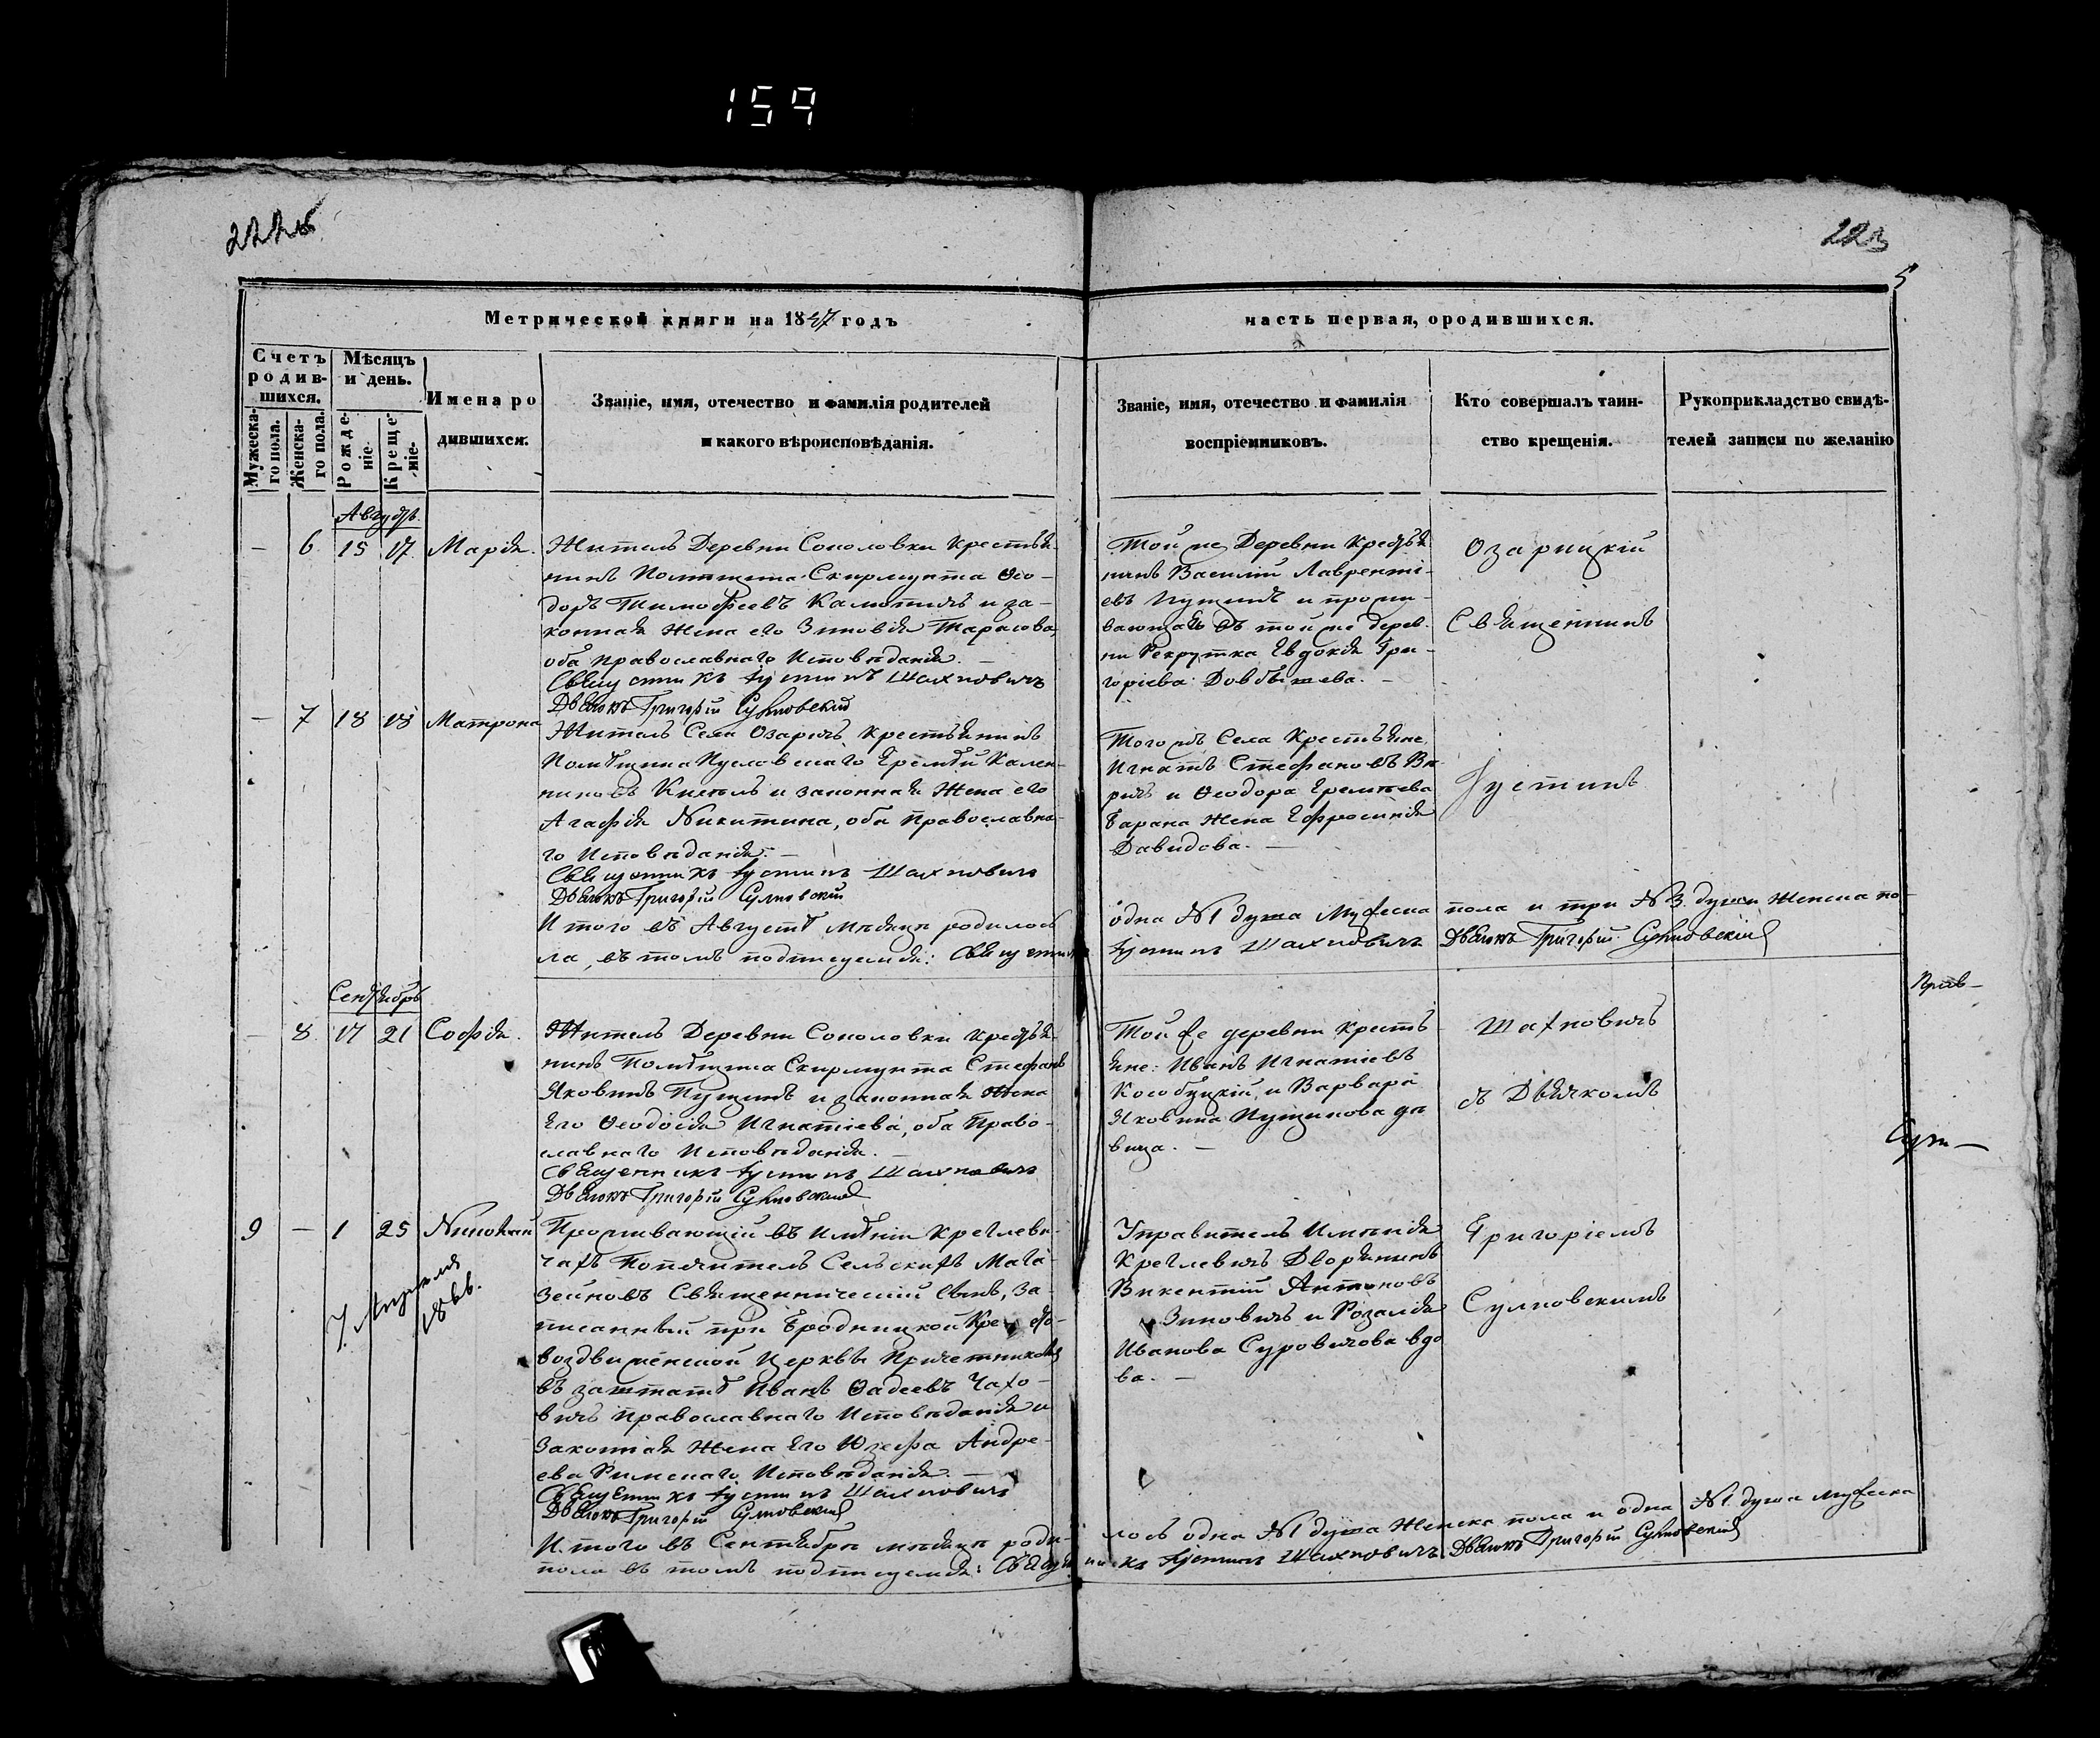 159
222об
223
5
Метрической книги на 1847 годъ
часть первая, ородившихся.
Счетъ родив-шихся.
Мѣсяцъ и день.
Мужеска-го пола.
Женска-го пола.
Рожде-ніе.
Креще-ніе.
Имена ро
дившихся.
Званіе, имя, отечество и фамилія родителей
и какого вѣроисповѣданія.
Званіе, имя, отечество и фамилія
воспріемниковъ.
Кто совершалъ таин-
ство крещенія.
Рукоприкладство свидѣ-
телей записи по желанію
Августъ
— 6 15 17 Марія.
Житель Деревни Соколовки Крестья
нинъ Помѣщика Скирмунта Ѳео-
доръ Тимофеевъ и за-
конная Жена его Зиновія Тарасова,
оба Православнаго Исповѣданія. —
Священникъ Іустинъ Шахновичъ
Дьячокъ Григорій Сулковскій
Той же Деревни Крестья
нинъ Василій Лавренті-
евъ Пущикъ и прожи-
вающая въ той же дерев-
ни Рекрутка Евдокія Гри-
горіева
Озарицкій
Священникъ
— 7 18 18 Матрона
Житель Села Озаричъ Крестьянинъ
Помѣщика Пусловскаго Еремѣй Кален-
никовъ и законная Жена его
Агафія Никитина, оба Православна-
го Исповѣданія. —
Священникъ Іустинъ Шахновичъ
Дьячокъ Григорій Сулковскій
Того жъ Села Крестьяне
Игнатъ Стефановъ
и Ѳеодора Еремѣева
Барана Жена Ефросинія
Давидова. —
Іустинъ
Итого въ Августѣ мѣсяцѣ родилось
одна №1 душа Мужеска пола и три №3 души Женска по-
ла, въ томъ подписуемся: Священникъ
Іустинъ Шахновичъ Дьячокъ Григорій Сулковскій
Сентябрь
— 8 17 21 Софія.
Житель Деревни Соколовки Крестья
нинъ Помѣщика Скирмунта Стефанъ
Яковинъ Пущикъ и законная Жена
Его Ѳеодосія Игнатіева, оба Право-
славнаго Исповѣданія. —
Священникъ Іустинъ Шахновичъ
Дьячокъ Григорій Сулковскій
Той же деревни Кресть
яне: Иванъ Игнатіевъ
Кособуцкій и Варвара
Яковина Пущикова дѣ
вица. —
Шахновичъ
съ Дьячкомъ
9 — 1 25 Николай
7. Апреля
1866.
Проживающій въ Имѣніи Креглеви-
чахъ Попечитель Сельскихъ Мага-
зейновъ Священническій сынъ, за-
писанный при Бродницкой Кресто-
воздвиженской Церквѣ Причетникомъ
въ заштатѣ Иванъ Ѳадеевъ Чахо-
вичъ Православнаго Исповѣданія и
Законная Жена Его Юзефа Андре-
ева Римскаго Исповѣданія. —
Священникъ Іустинъ Шахновичъ
Дьячокъ Григорій Сулковскій
Управитель Имѣнія
Креглевичъ Дворянинъ
Викентій Антоновъ
Зиновичъ и Розалія
Иванова Суровичова вдо
ва. —
Григоріемъ
Сулковскимъ
Итого въ Сентябрѣ мѣсяцѣ роди-
лось одна №1 душа Женска пола и одна №1 душа Мужеска
пола въ томъ подписуемся: Священ
никъ Іустинъ Шахновичъ. Дьячокъ Григорій Сулковскій